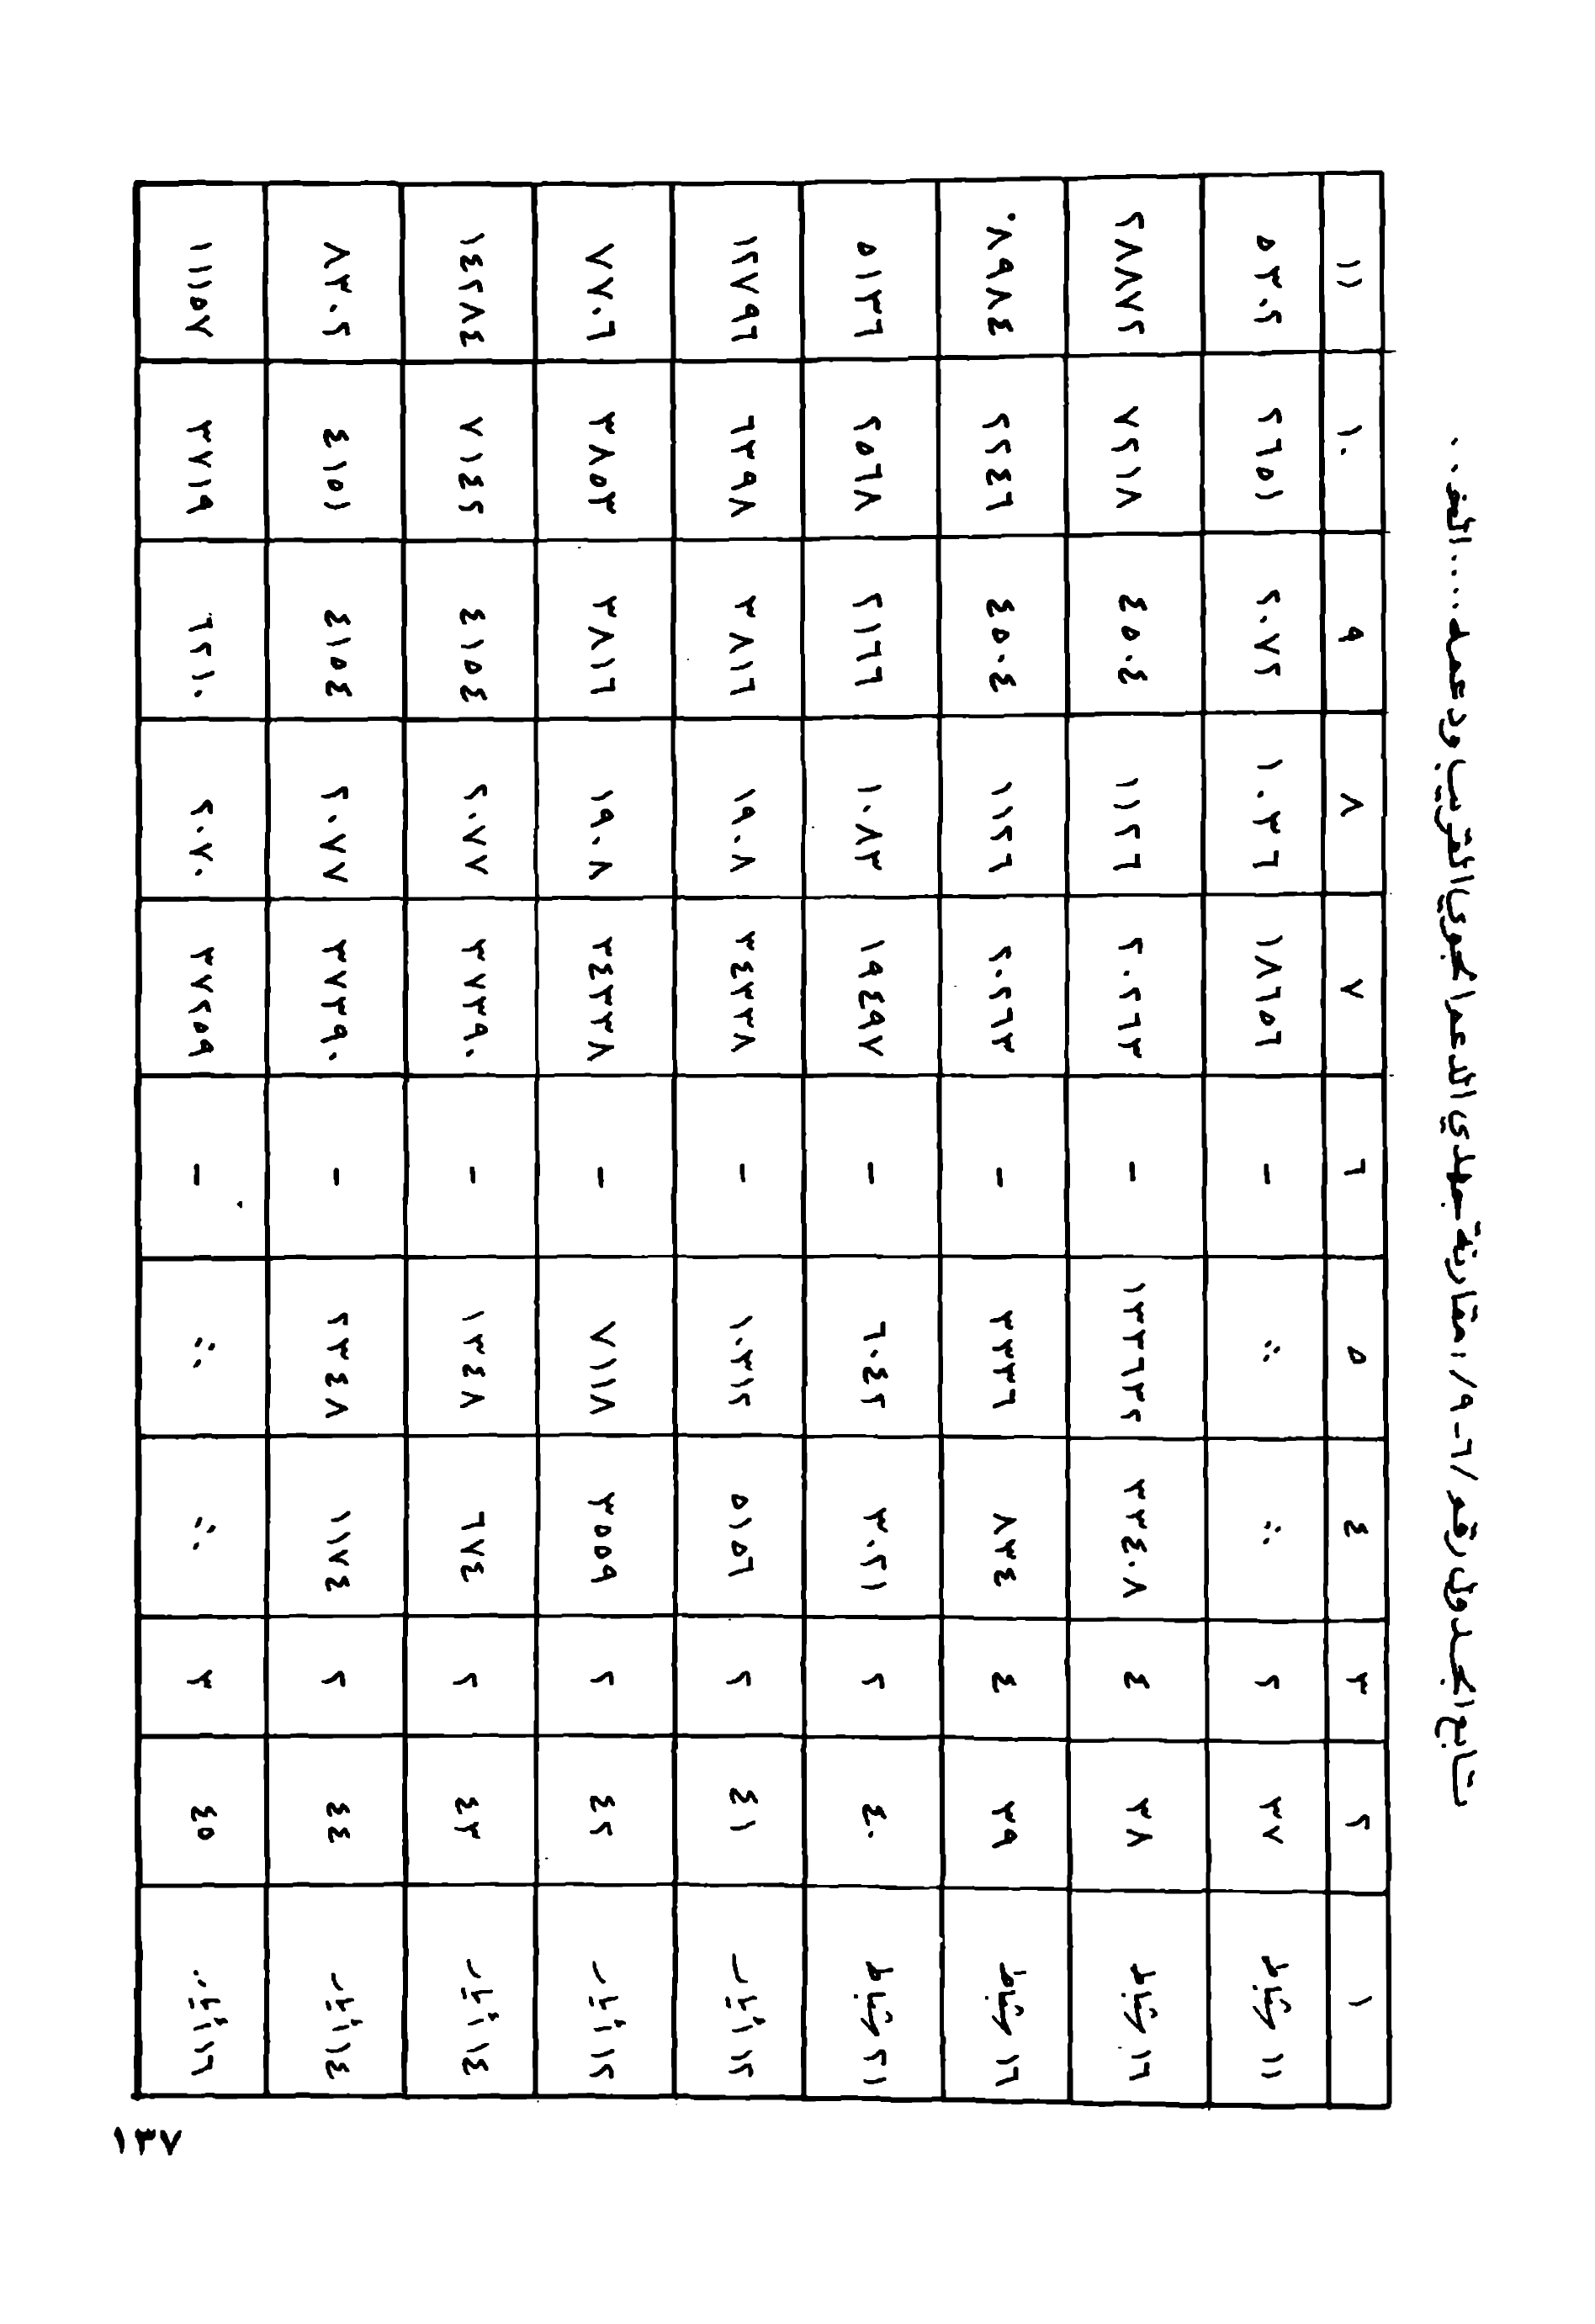 تابع الجدول رقم /٦-٩/: مقارنة جهدي الدعم الجوي القريب ودعمه....الف...
١ ٢ ٣ ٤ ٥ ٦ ٧ ٨ ٩ ١٠ ١١
١١ شباط ٣٧ ٢ ∴ ∴ - ١٨٦٥٦ ١٠٣٦ ٢٠٧٢ ٢٦٥١ ٥٣٠٢
١٦ شباط ٣٨ ٤ ٣٣٤٠٨ ١٣٣٦٣٢ - ٢٠٢٦٣ ١١٢٦ ٤٥٠٤ ٧٢١٨ ٢٨٨٧٢
١٦ شباط ٣٩ ٤ ٨٣٤ ٣٣٣٦ - ٢٠٢٦٣ ١١٢٦ ٤٥٠٤ ٢٢٤٦ ٨٩٨٤
٢١ شباط ٤٠ ٢ ٣٠٢١ ٦٠٤٢ - ١٩٤٩٧ ١٠٨٣ ٢١٦٦ ٢٥٦٨ ٥١٣٦
١٢ أيار ٤١ ٢ ٥١٥٦ ١٠٣١٢ - ٣٤٣٣٨ ١٩٠٨ ٣٨١٦ ٦٣٩٨ ١٢٧٩٦
١٢ أيار ٤٢ ٢ ٣٥٥٩ ٧١١٨ - ٣٤٣٣٨ ١٩٠٨ ٣٨١٦ ٣٨٥٣ ٧٧٠٦
١٤ أيار ٤٣ ٢ ٦٧٤ ١٣٤٨ - ٣٧٣٩٠ ٢٠٧٧ ٤١٥٤ ٧١٤٢ ١٤٢٨٤
١٤ أيار ٤٤ ٢ ١١٧٤ ٢٣٤٨ - ٣٧٣٩٠ ٢٠٧٧ ٤١٥٤ ٤١٥١ ٨٣٠٢
١٦ أيار ٤٥ ٣ ∴ ∴ - ٣٧٢٥٩ ٢٠٧٠ ٦٢١٠ ٣٧١٩ ١١١٥٧
١٣٧